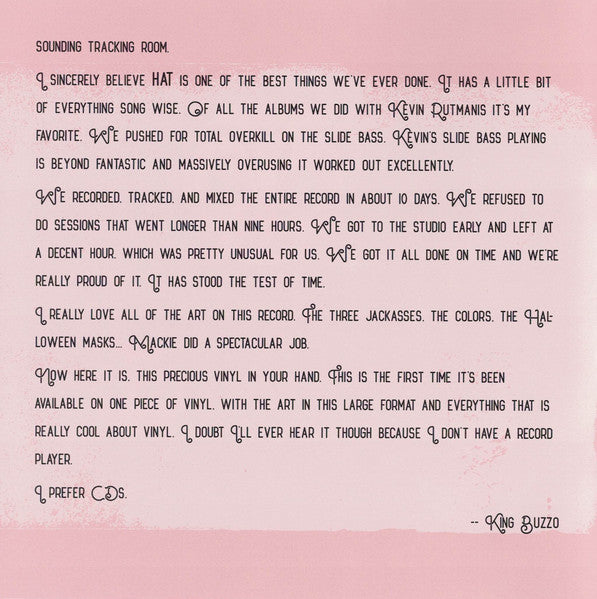 SOUNDING TRACKING ROOM.
I SINCERELY BELIEVE HAT IS ONE OF THE BEST THINGS WE'VE EVER DONE. IT HAS A LITTLE BIT
OF EVERYTHING SONG WISE. OF ALL THE ALBUMS WE DID WITH KEVIN RUTMANIS IT'S MY
FAVORITE. WE PUSHED FOR TOTAL OVERKILL ON THE SLIDE BASS. KEVIN'S SLIDE BASS PLAYING
IS BEYOND FANTASTIC AND MASSIVELY OVERUSING IT WORKED OUT EXCELLENTLY.
WE RECORDED, TRACKED, AND MIXED THE ENTIRE RECORD IN ABOUT 10 DAYS. WE REFUSED TO
DO SESSIONS THAT WENT LONGER THAN NINE HOURS. WE GOT TO THE STUDIO EARLY AND LEFT AT
A DECENT HOUR, WHICH WAS PRETTY UNUSUAL FOR US. WE GOT IT ALL DONE ON TIME AND WE'RE
REALLY PROUD OF IT. IT HAS STOOD THE TEST OF TIME.
I REALLY LOVE ALL OF THE ART ON THIS RECORD. THE THREE JACKASSES, THE COLORS, THE HAL-
LOWEEN MASKS... MACKIE DID A SPECTACULAR JOB.
NOW HERE IT IS, THIS PRECIOUS VINYL IN YOUR HAND. THIS IS THE FIRST TIME IT'S BEEN
AVAILABLE ON ONE PIECE OF VINYL, WITH THE ART IN THIS LARGE FORMAT AND EVERYTHING THAT IS
REALLY COOL ABOUT VINYL. I DOUBT I'LL EVER HEAR IT THOUGH BECAUSE I DON'T HAVE A RECORD
PLAYER.
I PREFER CDS.
-- KING BUZZO